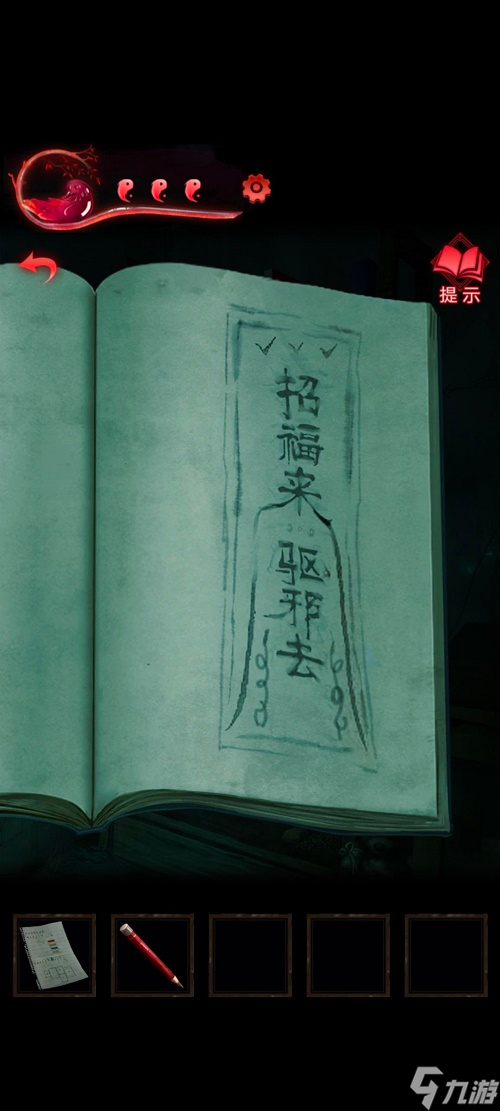 提示
招福来
驱邪去
九游